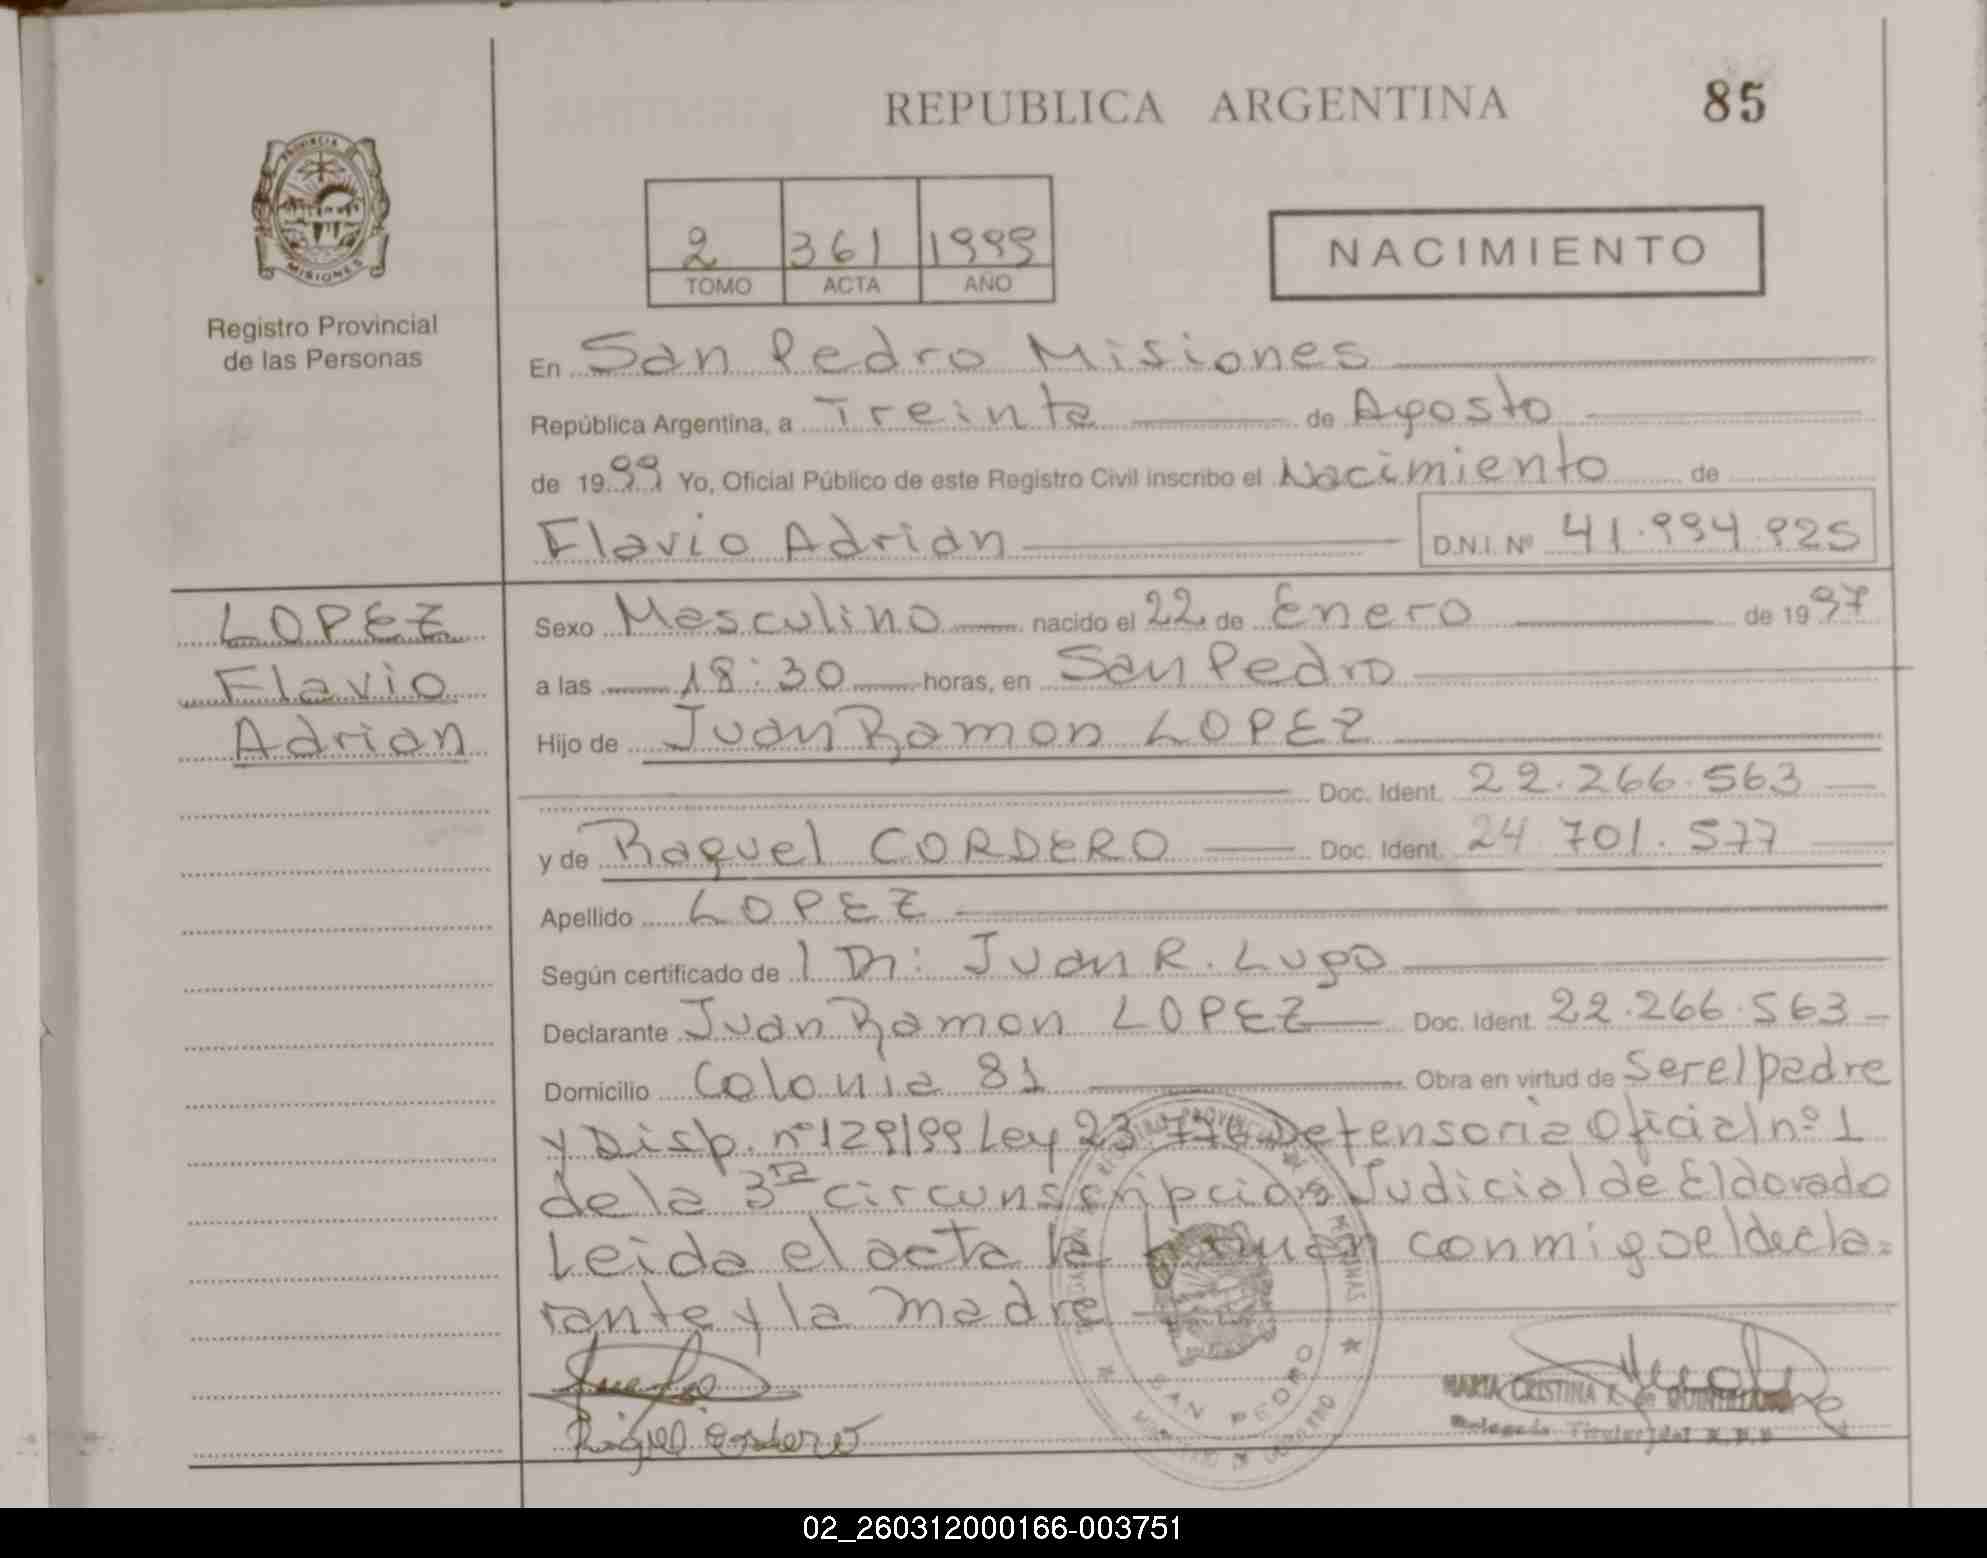 REPUBLICA ARGENTINA
85
PROVINCIA DE
MISIONES
Registro Provincial
de las Personas
2 361 1999
TOMO ACTA AÑO
NACIMIENTO
En San Pedro Misiones
República Argentina, a Treinta de Agosto
de 1999 Yo, Oficial Público de este Registro Civil inscribo el Nacimiento de
Flavio Adrian D.N.I. Nº 41.994.925
LOPEZ
Flavio
Adrian
Sexo Masculino nacido el 22 de Enero de 1997
a las 18:30 horas, en San Pedro
Hijo de Juan Ramon LOPEZ
Doc. Ident. 22.266.563
y de Raquel CORDERO Doc. Ident. 24.701.577
Apellido LOPEZ
Según certificado de 1 Dn: Juan R. Lugo
Declarante Juan Ramon LOPEZ Doc. Ident. 22.266.563
Domicilio Colonia 81 Obra en virtud de Ser el padre
y Disp. nº 129/99 Ley 23.776 Defensoria Oficial nº 1
de la 3ra circunscripcion Judicial de Eldorado
Leida el acta la firman conmigo el decla=
rante y la madre
Raquel Cordero
SAN PEDRO
MINISTERIO DE GOBIERNO
MARIA CRISTINA
Delegada Titular del R.P.P
02_260312000166-003751